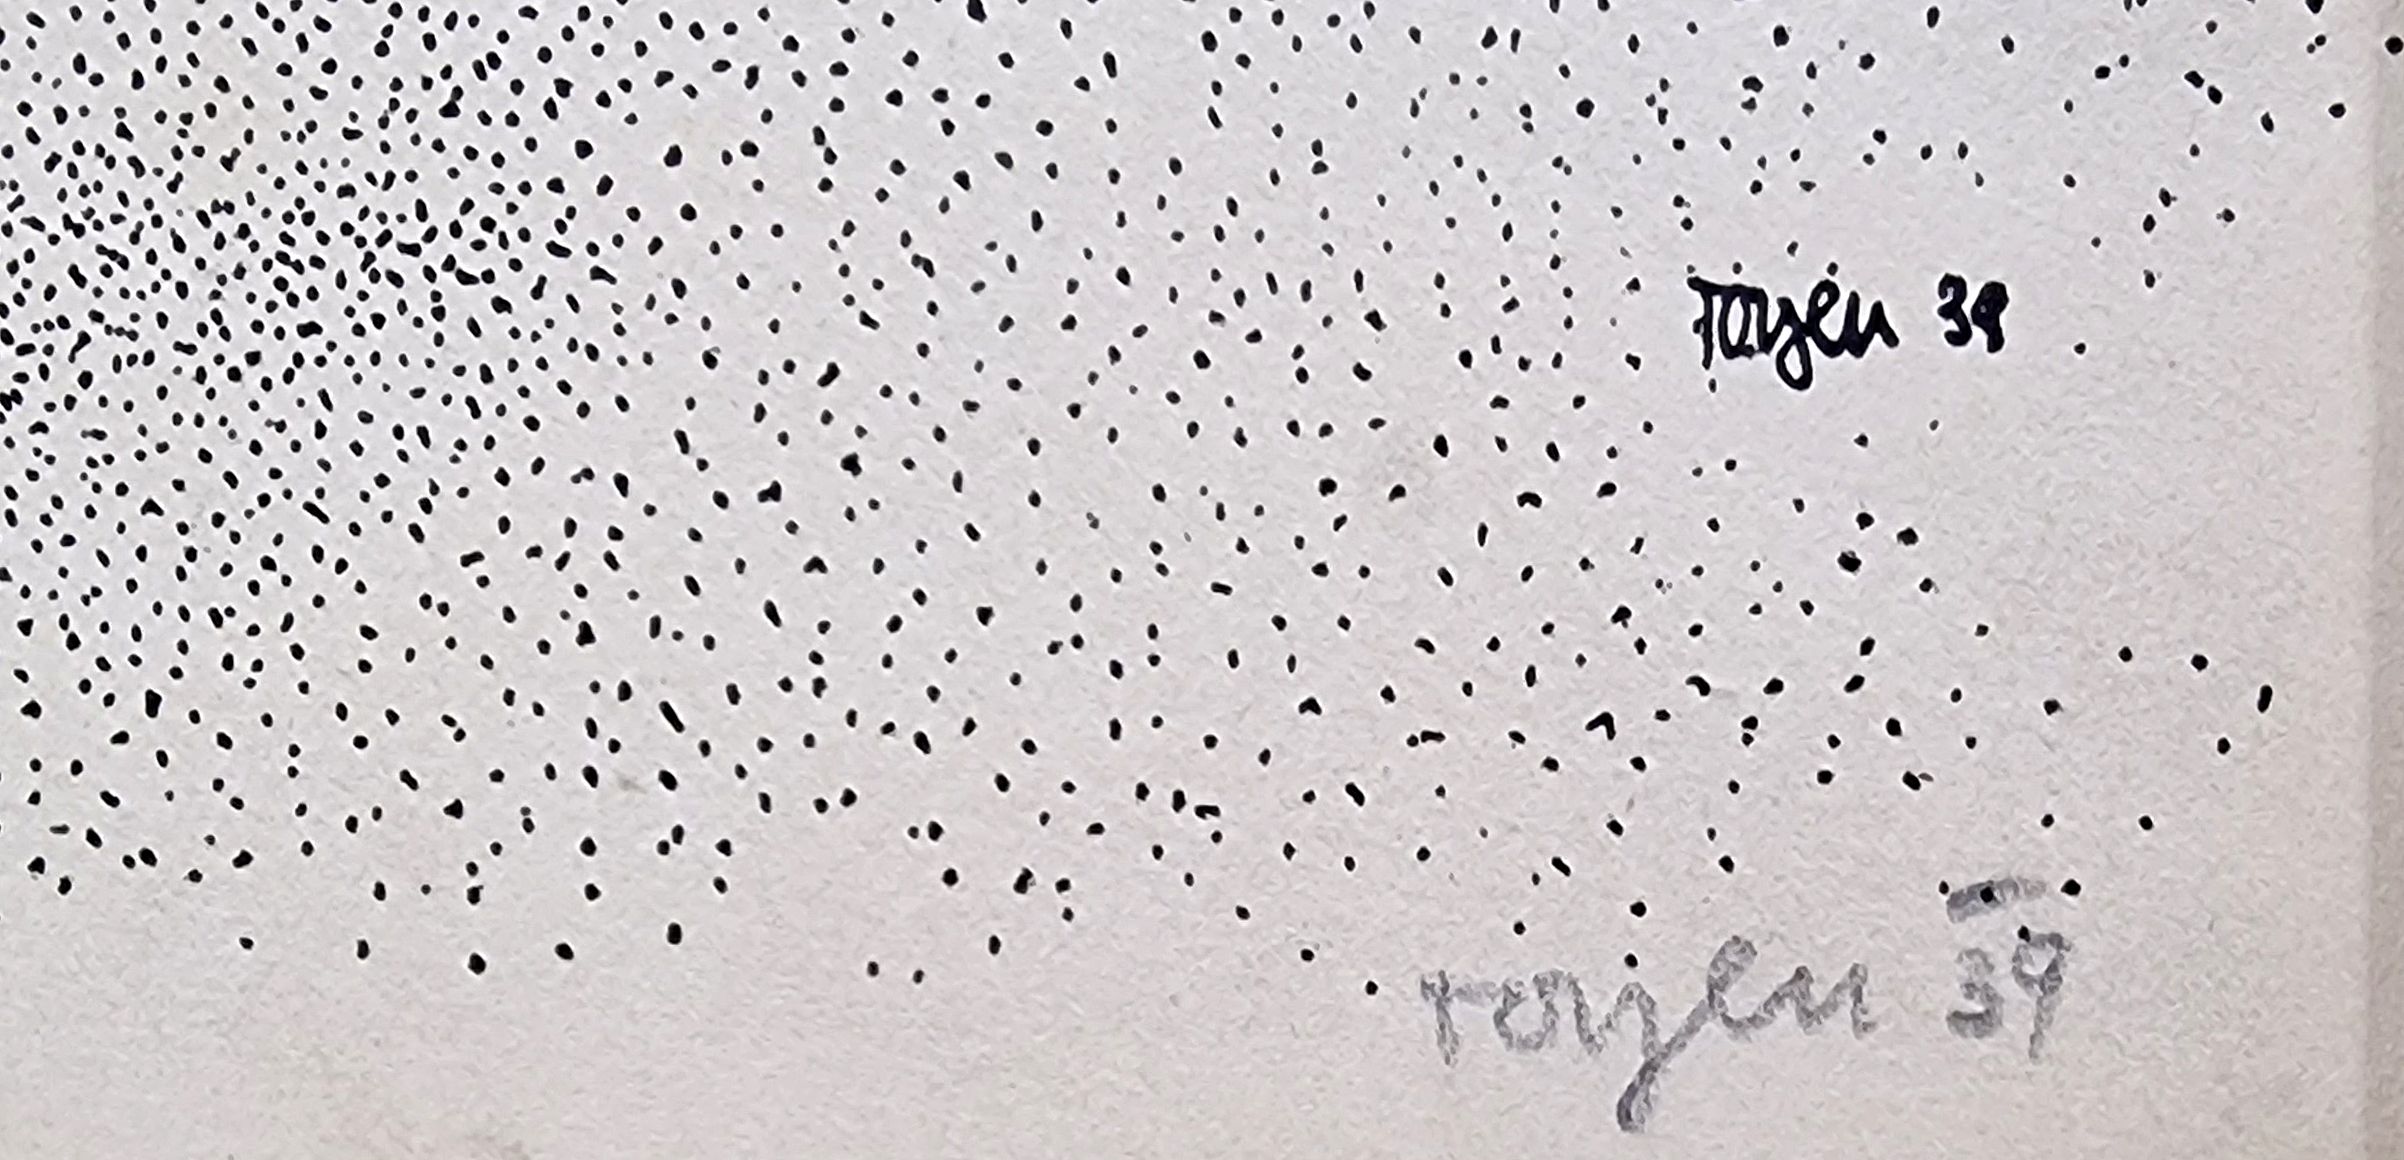 Toyen 39
Toyen 39